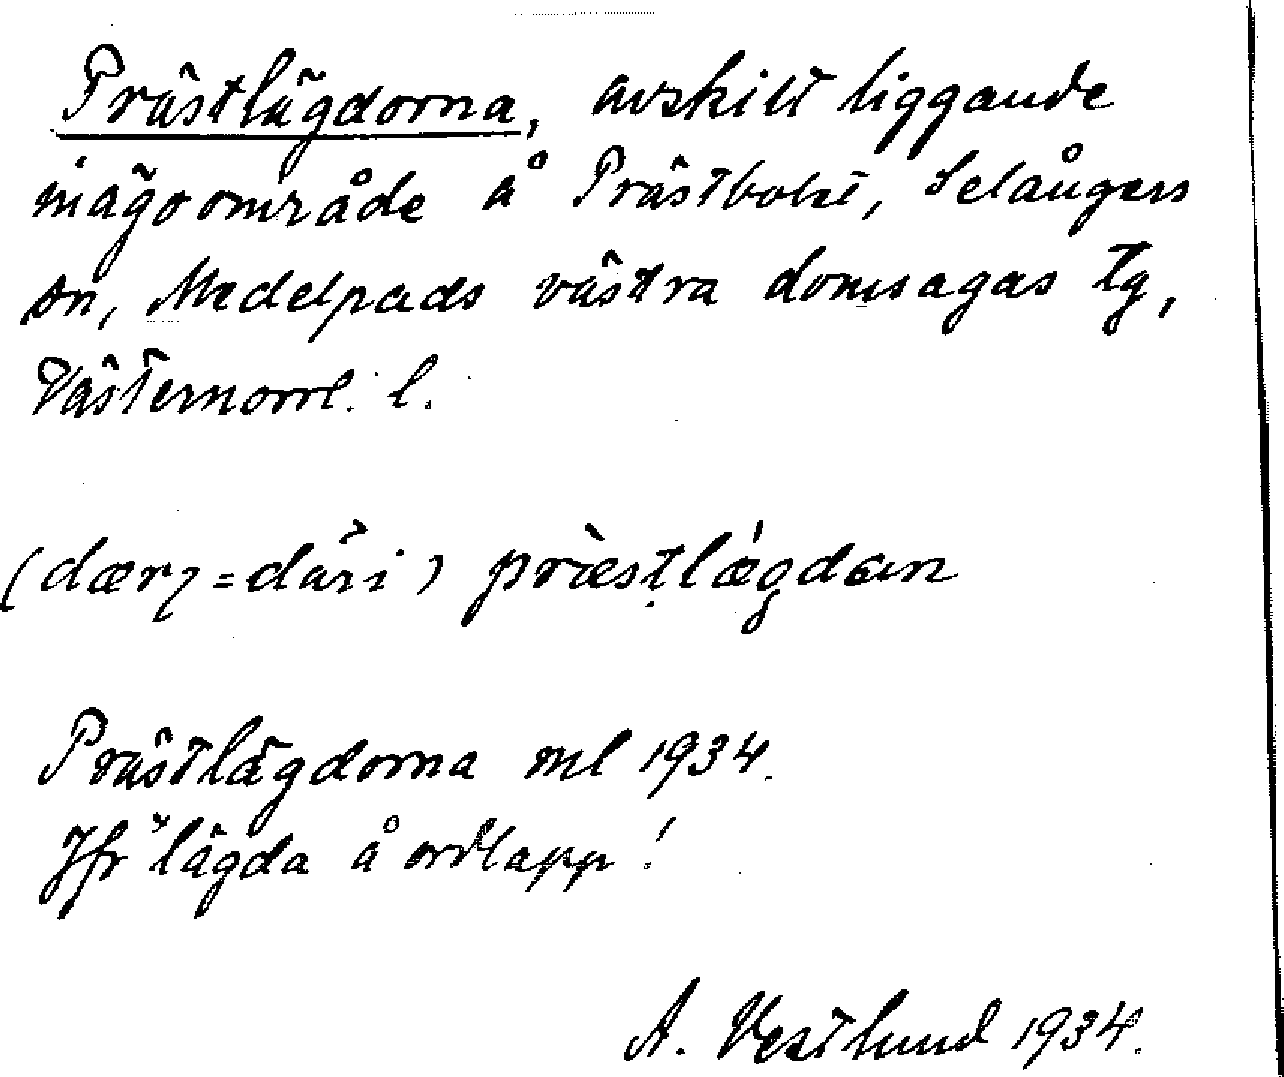 Prästlägdorna, avskilt liggande
inägoområde å Prästbolet, Selångers
sn, Medelpads västra domsagas tg,
Västernorrl. l.
(dærɩ = däri) pr̀æstlǽgdan
Prästlägdorna ml 1934.
Jfr lägda å ordlapp!
A. Vestlund 1934.